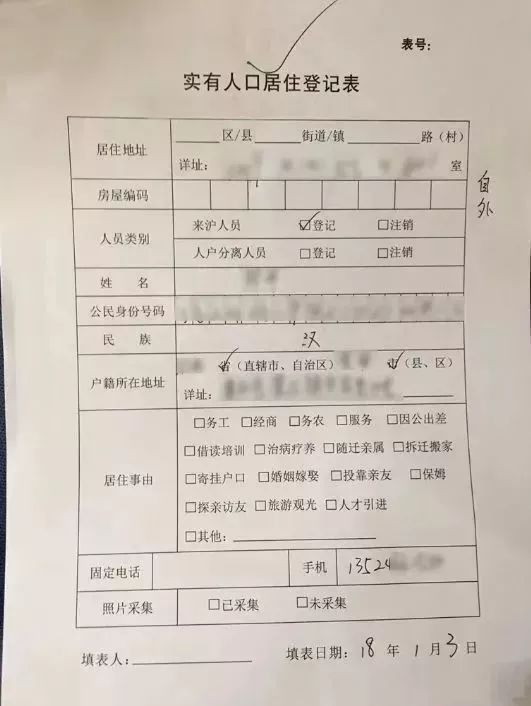 表号:
实有人口居住登记表
居住地址 ____区/县 ____街道/镇 ____路（村）
详址: 室
房屋编码
自外
人员类别 来沪人员 ☑登记 □注销
人户分离人员 □登记 □注销
姓 名
公民身份号码
民 族 汉
户籍所在地址 省（直辖市、自治区） 市（县、区）
详址:
居住事由 □务工 □经商 □务农 □服务 □因公出差
□借读培训 □治病疗养 □随迁亲属 □拆迁搬家
□寄挂户口 □婚姻嫁娶 □投靠亲友 □保姆
□探亲访友 □旅游观光 □人才引进
□其他:
固定电话 手机 13524
照片采集 □已采集 □未采集
填表人: 填表日期: 18 年 1 月 3 日